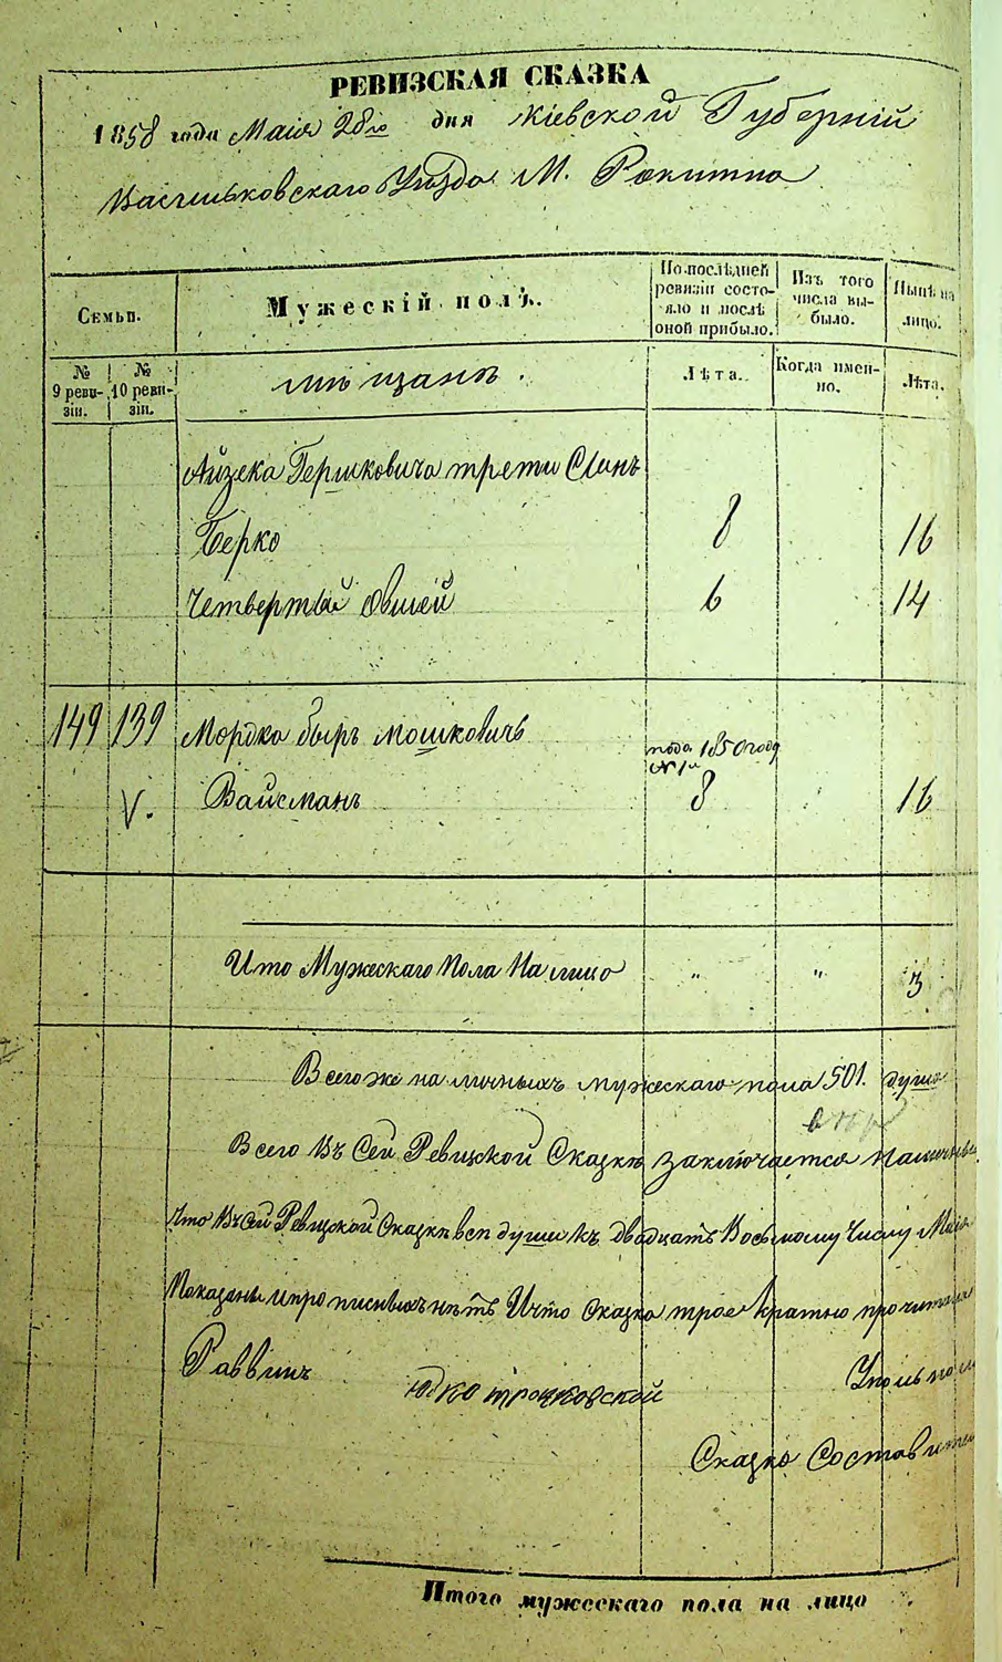 РЕВИЗСКАЯ СКАЗКА
1858 года Маія 28го дня Кіевской Губерній
Васильковскаго Уѣзда М. Рокитно
Семьи.
Мужескій полъ.
По послѣдней ревизіи состояло и послѣ оной прибыло.
Изъ того числа выбыло.
Нынѣ на лицо.
№ 9 ревизіи.
№ 10 ревизіи.
мѣщанѣ.
Лѣта.
Когда именно.
Лѣта.
Айзека Гершковича трети Сынъ
Берко 8 16
Четвертый Овшей 6 14
149 139 Мордко Быръ Мошковичъ
года 1850 году
№ 1й
V. Вайсманъ 8 16
Ито Мужескаго Пола На лицо " " 3
Всего же на личныхъ мужескаго пола 501. душа
Всего Въ Сей Ревизской Сказкѣ заключается
Что Въ Сей Ревизской Сказкѣ всѣ души къ двадцать Восьмому Числу Маія
Показаны и прописныхъ нѣтъ И что Сказка трое кратно
Раввинъ Юдко Трочковской
Сказка
Итого мужескаго пола на лицо